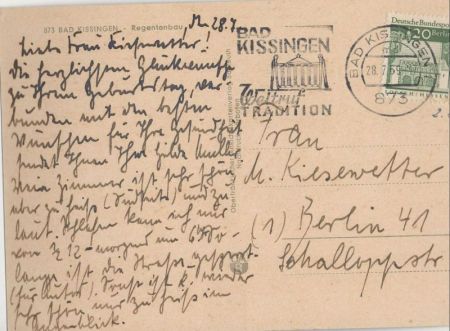 873 BAD KISSINGEN - Regentenbau
, den 28.7.
Liebe Frau Kiesewetter!
Die herzlichsten Glückwünsche
zu Ihrem Geburtstag, ver-
bunden mit den besten
Wünschen für Ihre Gesundheit
sendet Ihnen Ihre Hilde
Mein Zimmer ist sehr schön
aber zu heiß (Südseite) und zu
laut. Schlafen kann ich nur
von ½ 12 - morgens um 6 Uhr -
lange ist die Straße gesperrt
(für Autos). Sonst ist
nur zu heiß im
Augenblick.
BAD
KISSINGEN
Weltruf
TRADITION
BAD KISSINGEN
28.7.69
873
Deutsche Bundespost
20 Berlin
Frau
M. Kiesewetter
(1) Berlin 41
Schalloppstr